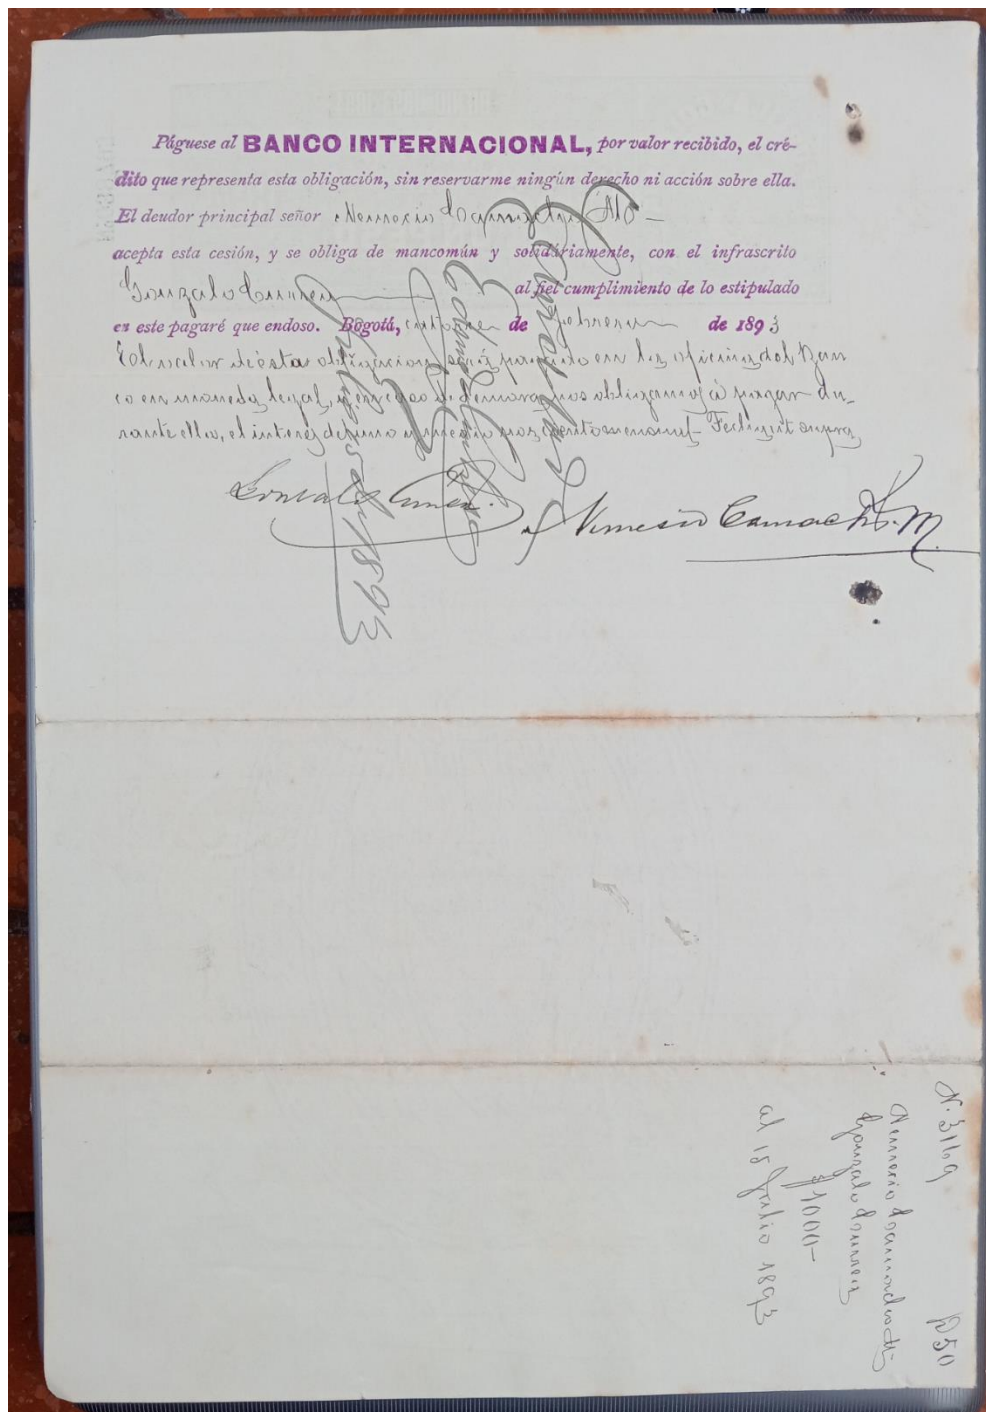 Páguese al BANCO INTERNACIONAL, por valor recibido, el cré-
dito que representa esta obligación, sin reservarme ningún derecho ni acción sobre ella.
El deudor principal señor Nemesio Camacho M -
acepta esta cesión, y se obliga de mancomún y solidáriamente, con el infrascrito
Gonzalo al fiel cumplimiento de lo estipulado
en este pagaré que endoso. Bogotá, catorce de febrero de 1893
El valor de ésta obligacion será pagado en la oficina del Ban
co en moneda legal, y en caso de demora, nos obligamos á pagar du-
rante ella, el interés de uno y medio por ciento mensual - Fecha ut supra
Gonzalo
Nemesio Camacho M.
Cancelada
Julio 1893
N. 3169 D 50
Nemesio Camacho M-
Gonzalo
$ 1000-
al 15 Julio 1893